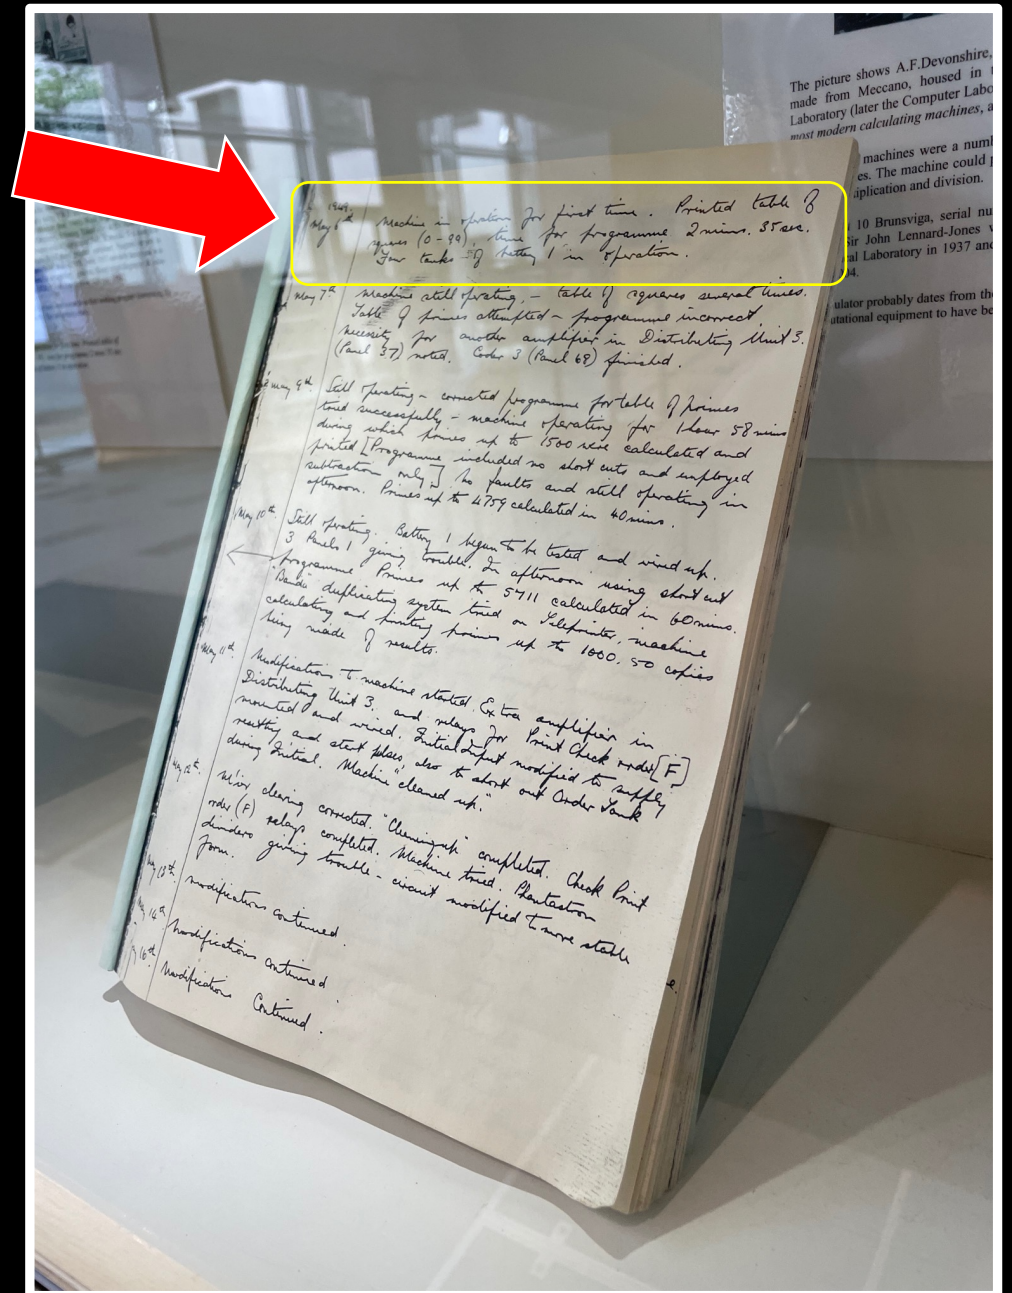 The picture shows A.F.Devonshire,
made from Meccano, housed in
Laboratory (later the Computer Labo
most modern calculating machines, a
machines were a numb
es. The machine could p
iplication and division.
10 Brunsviga, serial nu
Sir John Lennard-Jones
al Laboratory in 1937 and
4.
ulator probably dates from the
utational equipment to have be
1949.
May 6th Machine in operation for first time. Printed table of
squares (0-99), time for programme 2 mins. 35 sec.
Four tanks of battery 1 in operation.
May 7th Machine still operating, - table of squares several times.
Table of primes attempted - programme incorrect
Necessity for another amplifier in Distributing Unit 3.
(Panel 37) noted. Coder 3 (Panel 68) finished.
May 9th Still operating - corrected programme for table of primes
tried successfully - machine operating for 1 hour 58 mins
during which primes up to 1500 were calculated and
printed [Programme included no short cuts and employed
subtraction only] No faults and still operating in
afternoon. Primes up to 4759 calculated in 40 mins.
May 10th Still operating. Battery 1 begun to be tested and wired up.
3 Panels 1 giving trouble. In afternoon using short cut
programme Primes up to 5711 calculated in 60 mins.
"Banda" duplicating system tried on Teleprinter, machine
calculating and printing primes up to 1000. 50 copies
being made of results.
May 11th Modifications to machine started. Extra amplifier in
Distributing Unit 3, and relays for Print Check order [F]
mounted and wired. Initial Input modified to supply
resetting and start pulses, also to short out Order Tank
during Initial. Machine "cleaned up."
May 12th clearing corrected. "Cleaning up" completed. Check Print
order (F) relays completed. Machine tried. Phantastron
dividers giving trouble - circuit modified to more stable
form.
May 13th Modifications continued.
May 14th Modifications continued.
16th Modifications Continued.